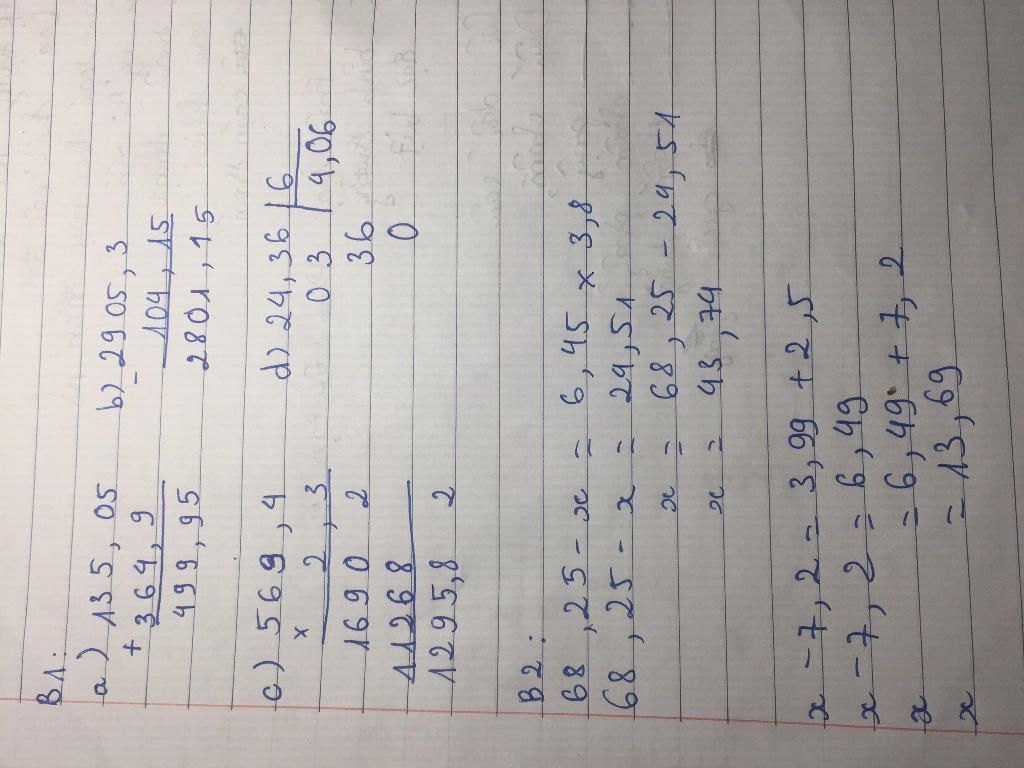 B1:
a) 135,05 b) 2905,3
+ -
364,9 104,15
499,95 2801,15
c) 569,4 d) 24,36 | 6
x 03 | 4,06
2,3 36
1690 2 0
11268
1295,8 2
B2:
68,25 - x = 6,45 x 3,8
68,25 - x = 24,51
x = 68,25 - 24,51
x = 43,74
x - 7,2 = 3,99 + 2,5
x - 7,2 = 6,49
x = 6,49 + 7,2
x = 13,69